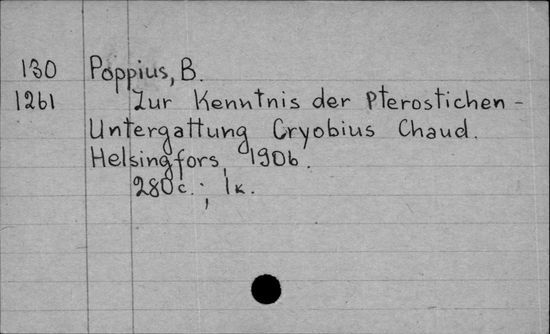 130 Poppius, B.
1261 Zur Kenntnis der Pterostichen-
Untergattung Cryobius Chaud.
Helsingfors, 1906.
280c.; 1к.